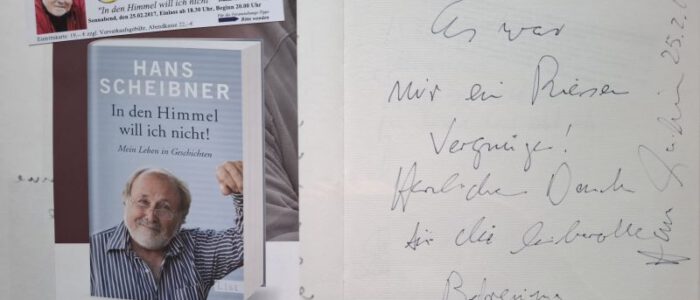 "In den Himmel will ich nicht"
Sonnabend, den 25.02.2017, Einlass ab 18.30 Uhr, Beginn 20.00 Uhr
Eintrittskarte 19,- € zzgl. Vorverkaufsgebühr, Abendkasse 22,- €
Bitte wenden
HANS
SCHEIBNER
In den Himmel
will ich nicht!
Mein Leben in Geschichten
List
Es war
mir ein Riesen
Vergnügen!
Herzlichen Dank
für die liebevolle
Betreuung
25.2.